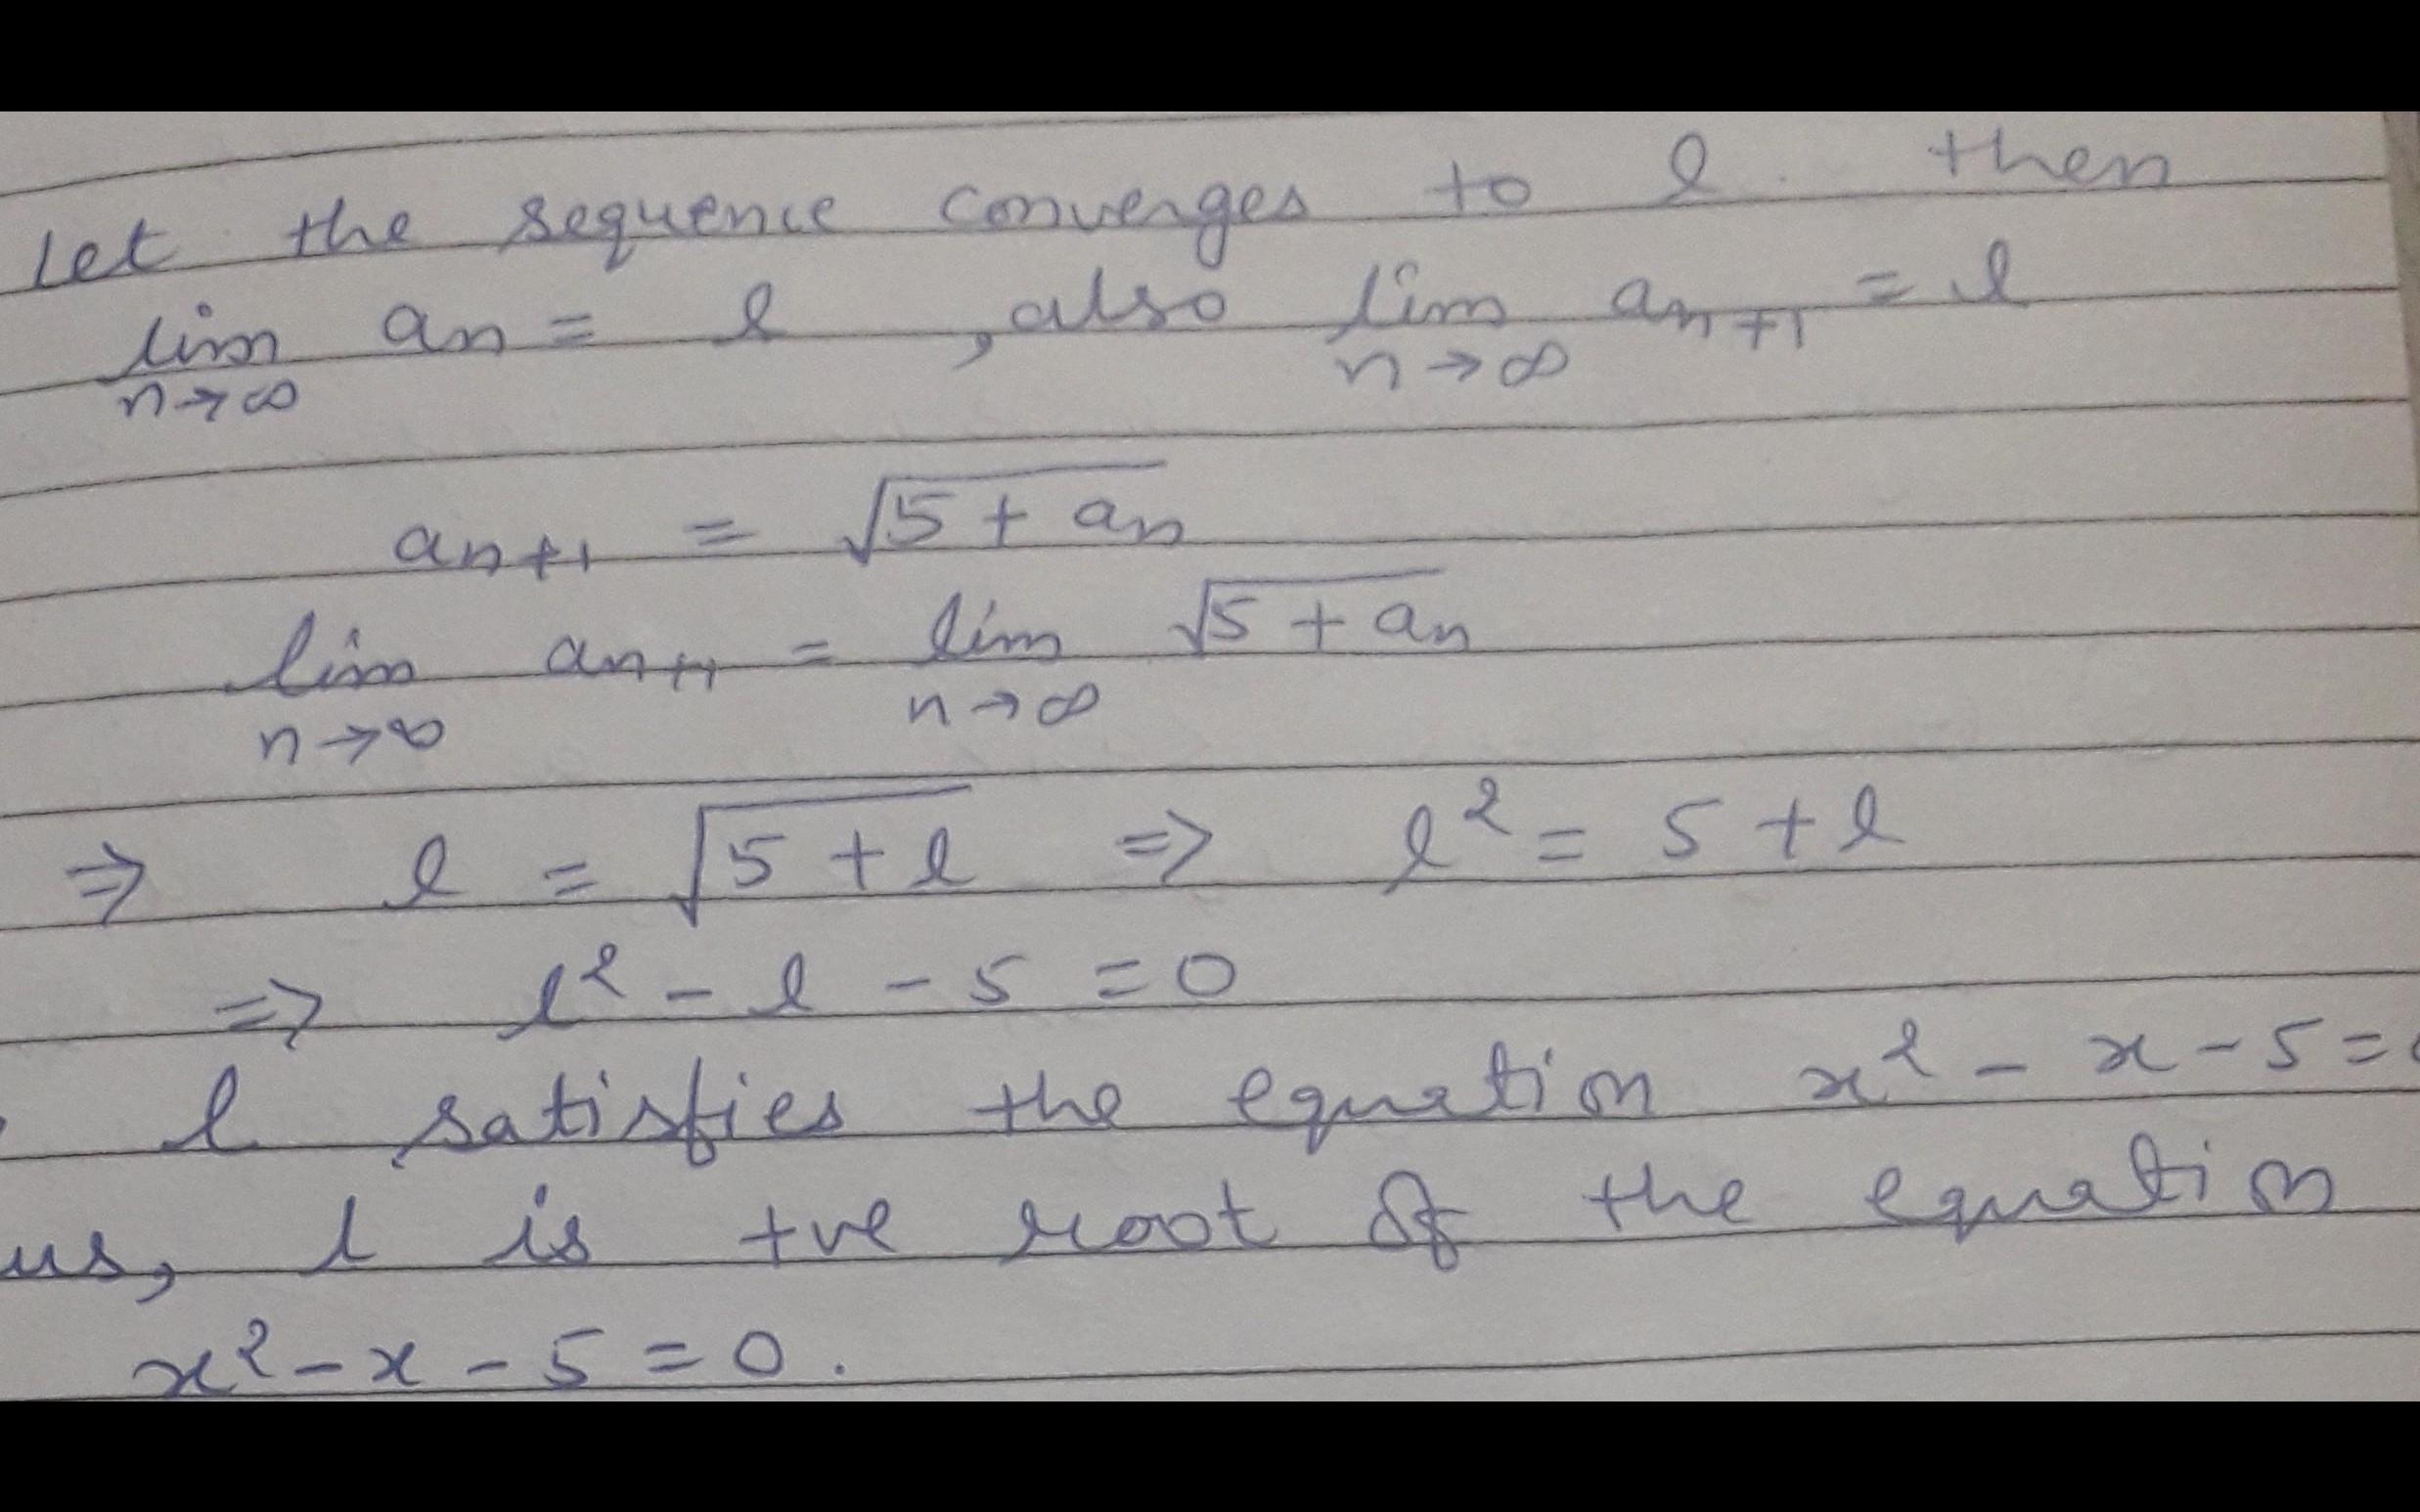 Let the sequence converges to l then
lim n→∞ an = l , also lim n→∞ an+1 = l
an+1 = √5 + an
lim n→∞ an+1 = lim n→∞ √5 + an
⇒ l = √5 + l ⇒ l² = 5 + l
⇒ l² - l - 5 = 0
l satisfies the equation x² - x - 5 =
us, l is +ve root of the equation
x² - x - 5 = 0.